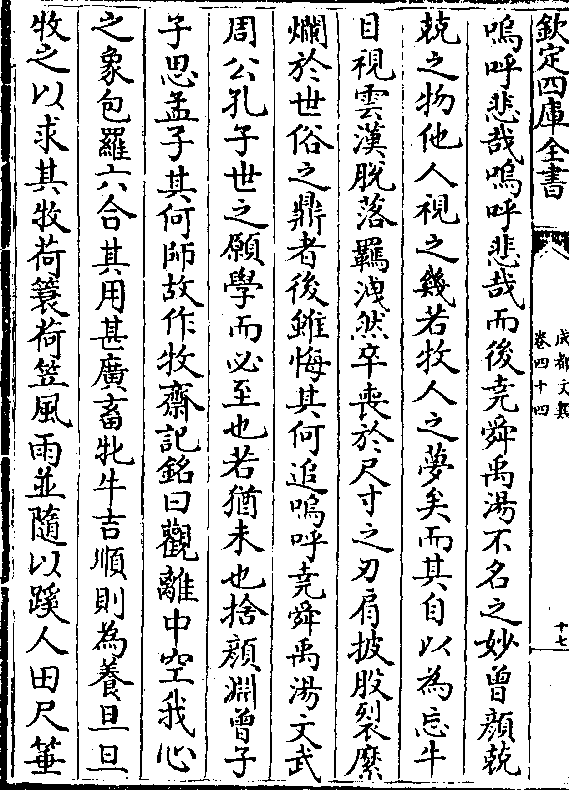 欽定四庫全書
成都文類
卷四十四
十七
嗚呼悲哉嗚呼悲哉而後堯舜禹湯不名之妙曾顏兢
兢之物他人視之幾若牧人之夢矣而其自以為忘牛
日視雲漢脫落羈洩然卒喪於尺寸之刃肩披股裂糜
爛於世俗之鼎者後雖悔其何追嗚呼堯舜禹湯文武
周公孔子世之願學而必至也若猶未也捨顏淵曾子
子思孟子其何師故作牧齋記銘曰觀離中空我心
之象包羅六合其用甚廣畜牝牛吉順則為養旦旦
牧之以求其牧荷簑荷笠風雨並隨以蹊人田尺箠